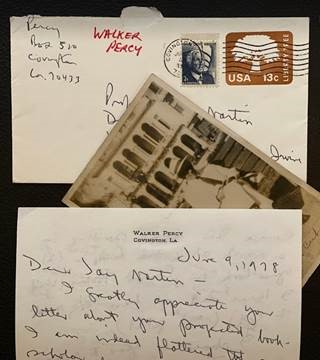 Percy
Box 510
Covington
La. 70433
WALKER
PERCY
COVINGTON
LIBERTY TREE
USA 13c
Prof
Martin
Irvine
WALKER PERCY
COVINGTON, LA
June 9, 1978
Dear Jay Martin -
I greatly appreciate your
letter about your projected book -
I am indeed flattered that
scholar